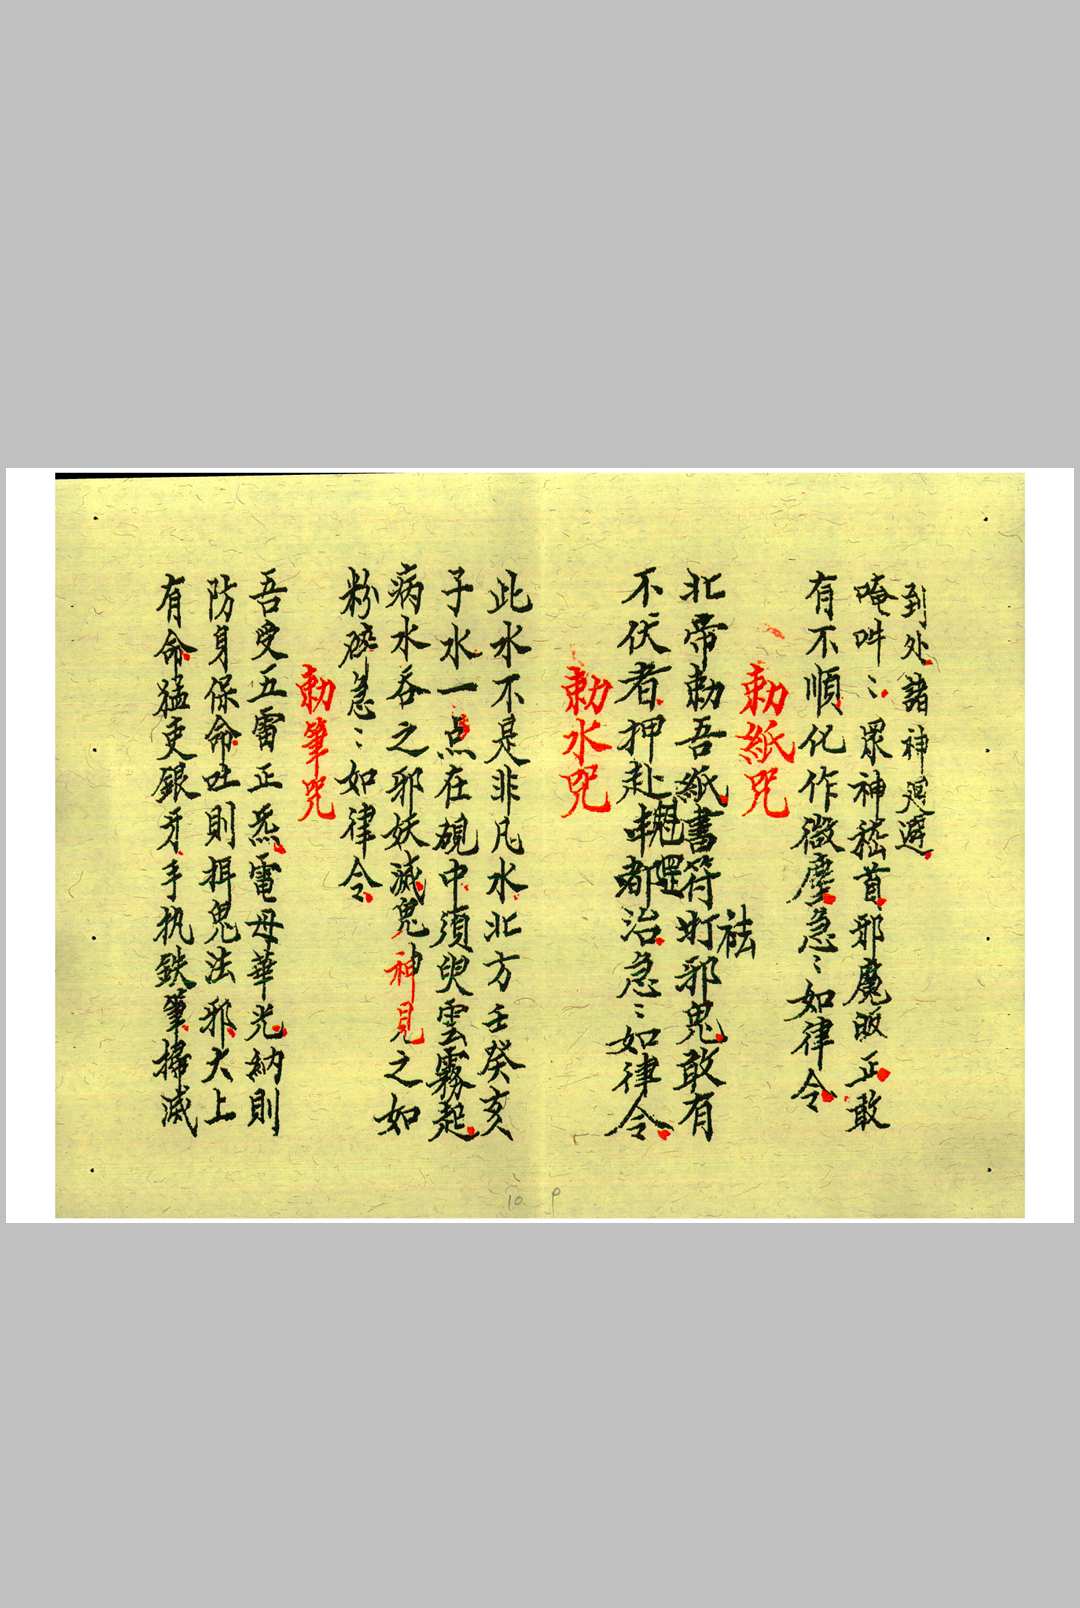 到处諸神廻避
唵吽〻眾神嵇首邪魔皈正敢
有不順化作微塵急〻如律令
敕紙咒
北帝敕吾紙書符打邪鬼敢有
祛
不伏者押赴都治急〻如律令
魁罡
敕水咒
此水不是非凡水北方壬癸亥
子水一点在硯中須臾雲霧起
病水吞之邪妖滅鬼神見之如
粉碎急〻如律令
敕筆咒
吾受五雷正炁電母華光納則
防身保命吐則捐鬼法邪大上
有命猛吏銀牙手执鉄筆掃滅
10 9